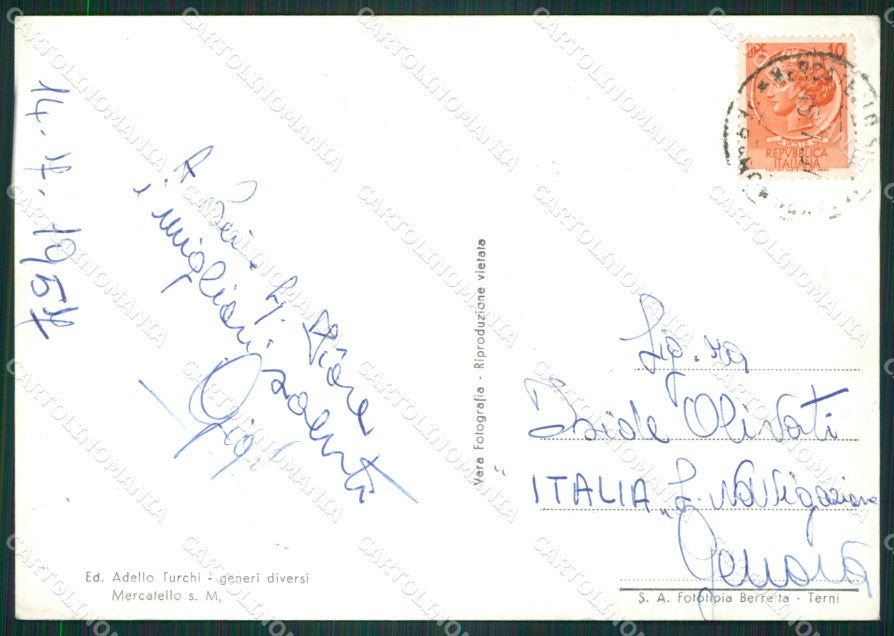 14.7.1957
A Lei e Sig. Fiore
i migliori saluti
Gigi
Vera Fotografia - Riproduzione vietata
Ed. Adello Turchi - generi diversi
Mercatello s. M.
LIRE 10
REPVBBLICA
ITALIANA
Sig.ra
Iside Olivati
"ITALIA" S. Navigazione
Genova
S. A. Fototipia Berretta - Terni
CARTOLINOMANIA